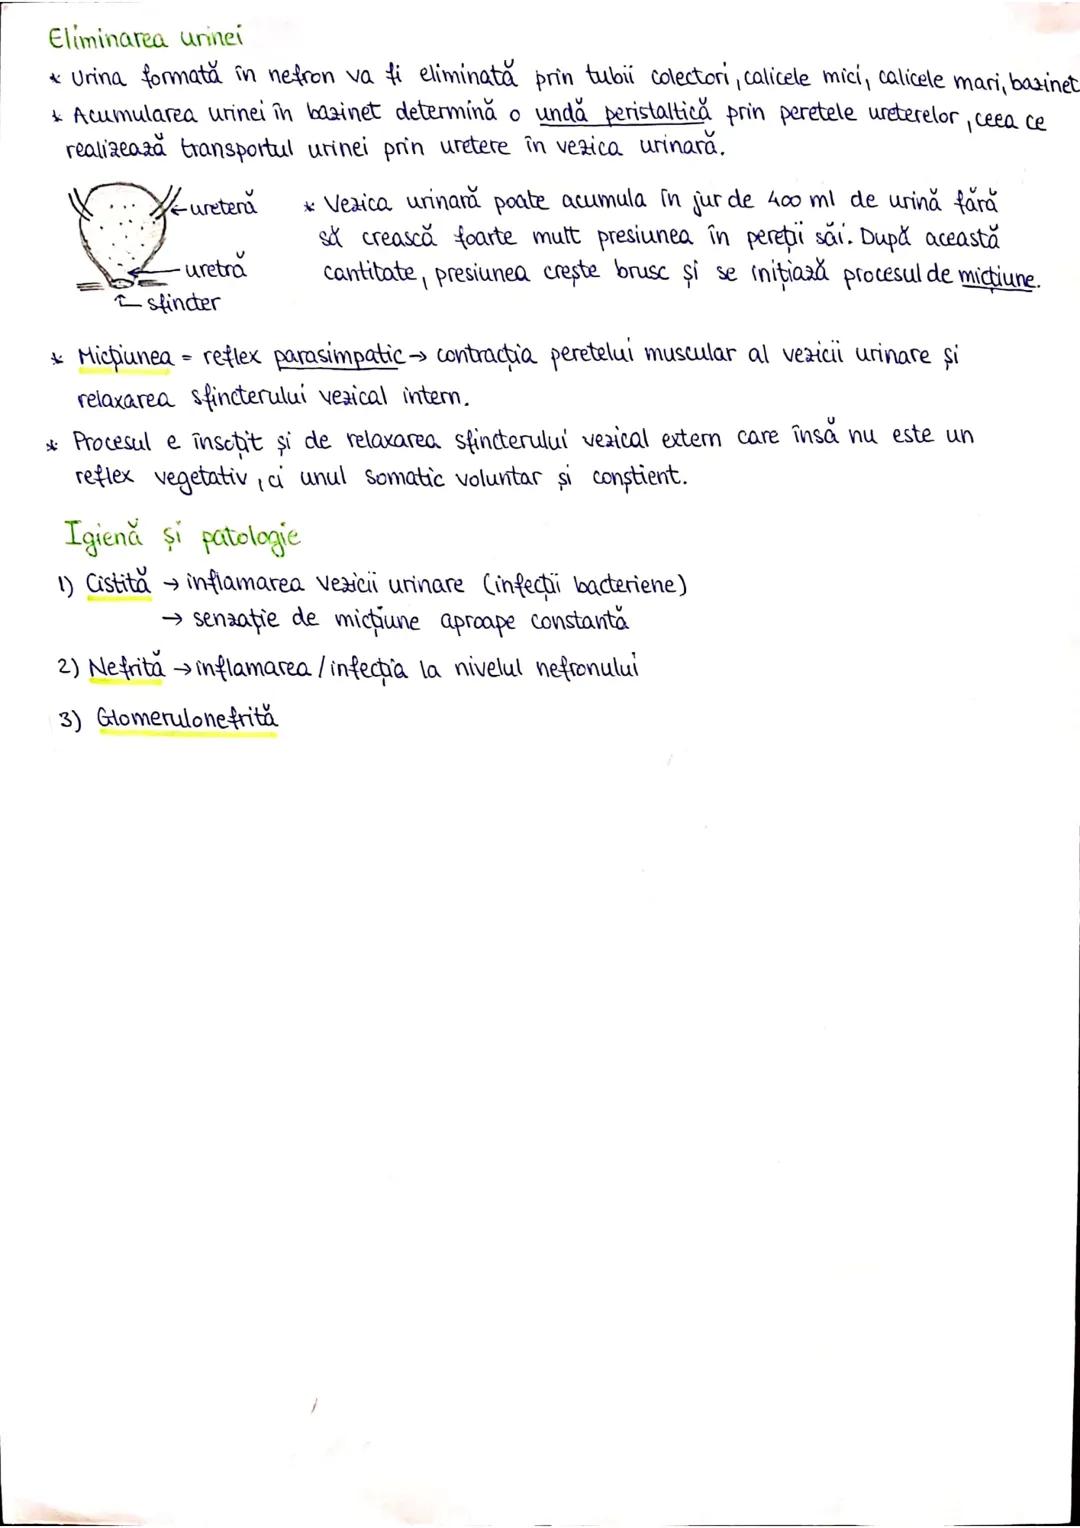 Eliminarea urinei
* Urina formată în nefron va fi eliminată prin tubii colectori, calicele mici, calicele mari, bazinet
* Acumularea urinei în bazinet determină o undă peristaltică prin peretele ureterelor, ceea ce
realizează transportul urinei prin uretere în vezica urinară.
← ureteră
* Vezica urinară poate acumula în jur de 400 ml de urină fără
să crească foarte mult presiunea în pereții săi. După această
← uretră
cantitate, presiunea crește brusc și se inițiază procesul de micțiune.
sfincter
* Micțiunea = reflex parasimpatic → contracția peretelui muscular al vezicii urinare și
relaxarea sfincterului vezical intern.
* Procesul e însoțit și de relaxarea sfincterului vezical extern care însă nu este un
reflex vegetativ, ci unul somatic voluntar și conștient.
Igienă și patologie
1) Cistită → inflamarea vezicii urinare (infecții bacteriene)
→ senzație de micțiune aproape constantă
2) Nefrită → inflamarea / infecția la nivelul nefronului
3) Glomerulonefrită